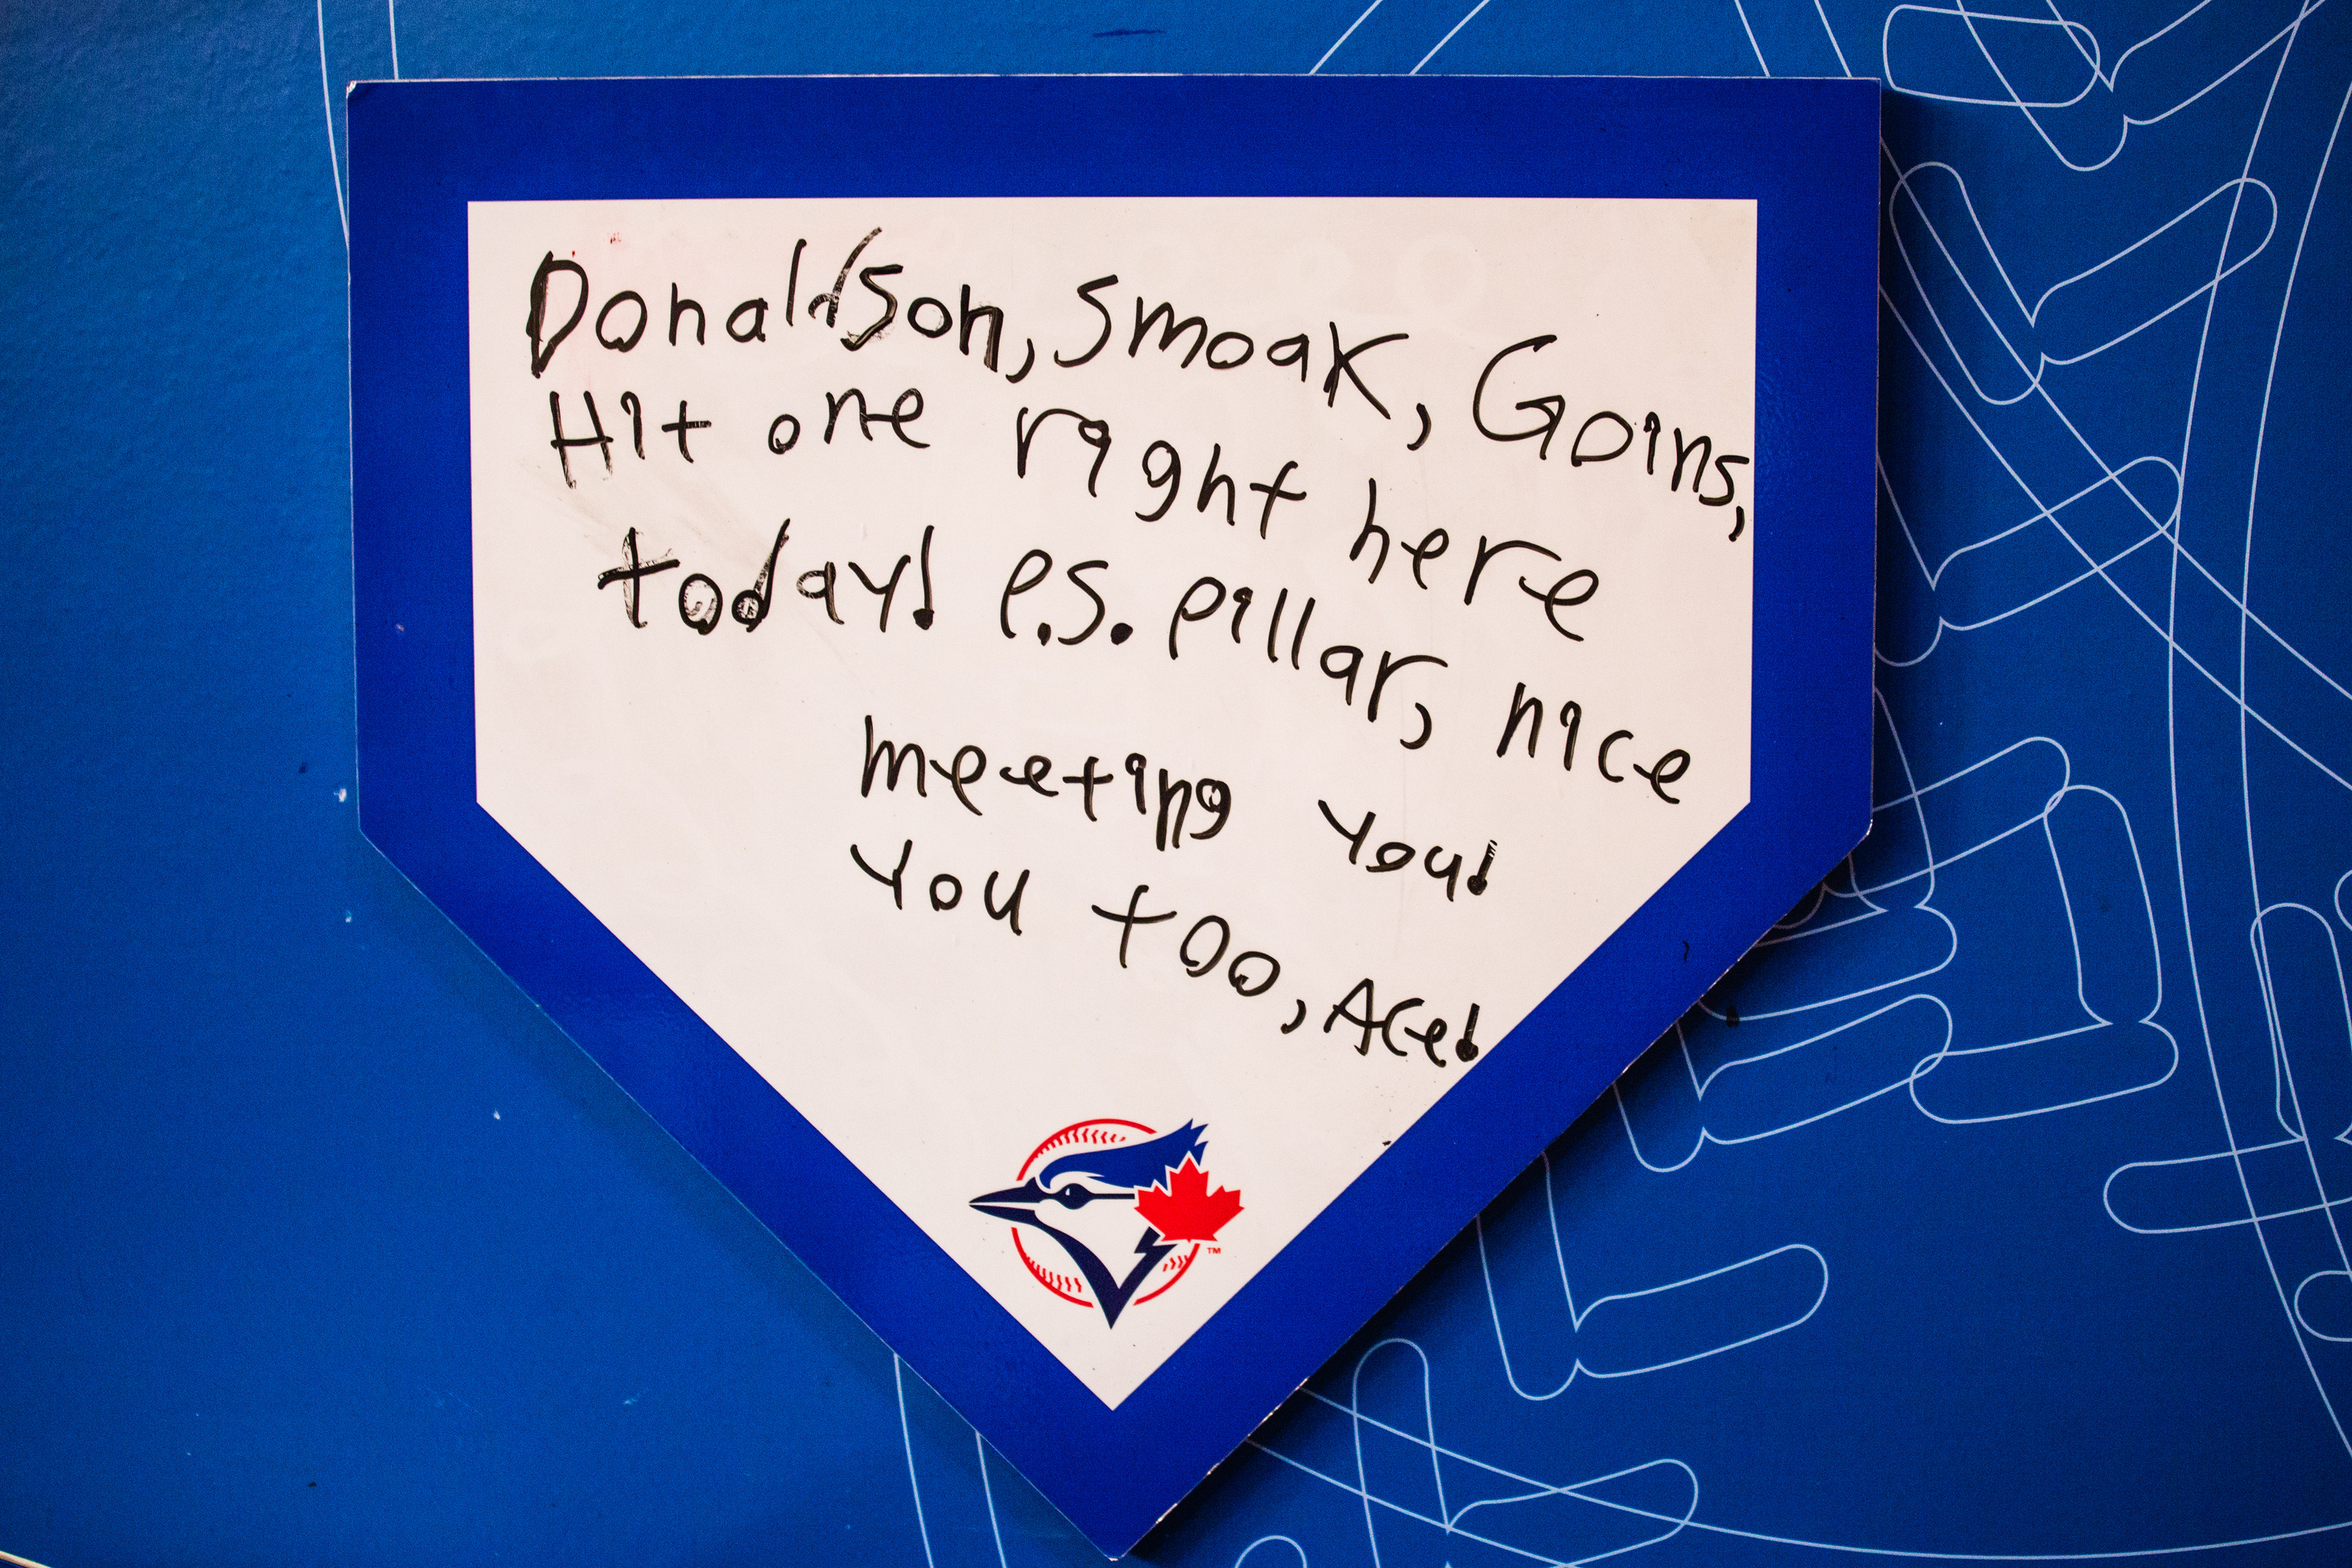 Donaldson, Smoak, Goins,
Hit one right here
today! P.S. pillar, nice
meeting you!
You too, Ace!
TM